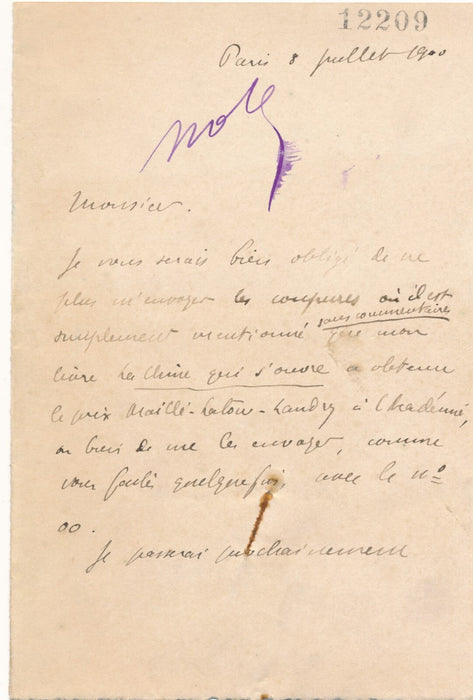 12209
Paris 8 juillet 1900
Note
Monsieur.
Je vous serais bien obligé de ne
plus m'envoyer les coupures où il est
sans commentaires
simplement mentionné que mon
livre La Chine qui s'ouvre a obtenu
le prix Maillé-Latour-Landry à l'Académie,
ou bien de me les envoyer, comme
vous faites quelquefois, avec le nº
00.
Je passerai prochainement